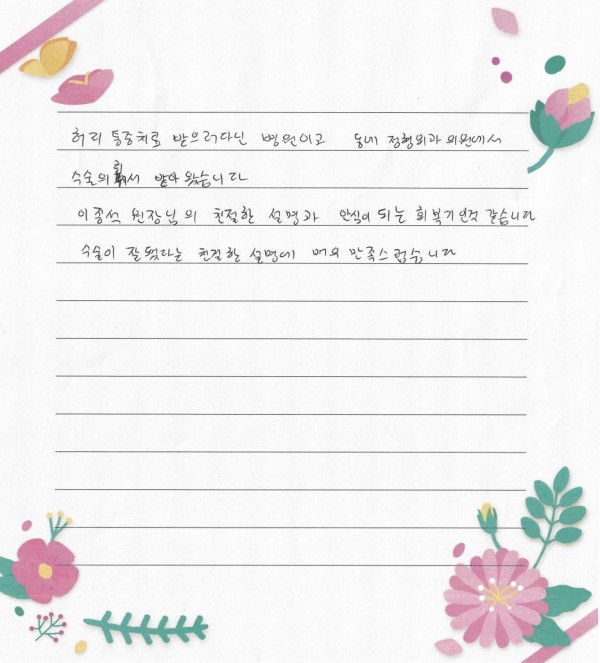 허리 통증치료 받으러다닌 병원이고 동네 정형외과 의원에서
수술의뢰서 받아 왔습니다
이종석 원장님의 친절한 설명과 안심이 되는 회복기인것 같습니다
수술이 잘됐다는 친절한 설명에 매우 만족스럽습니다